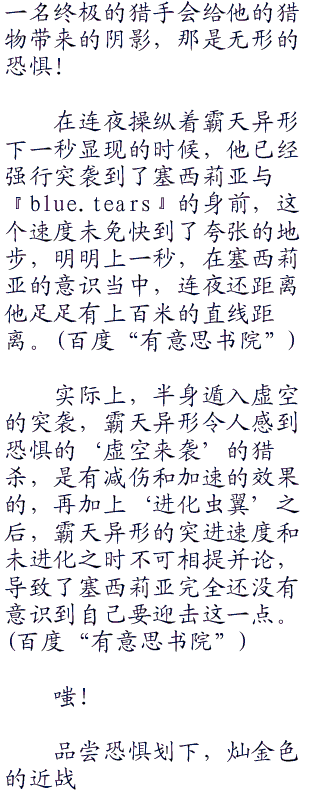 一名终极的猎手会给他的猎
物带来的阴影，那是无形的
恐惧！
在连夜操纵着霸天异形
下一秒显现的时候，他已经
强行突袭到了塞西莉亚与
『blue.tears』的身前，这
个速度未免快到了夸张的地
步，明明上一秒，在塞西莉
亚的意识当中，连夜还距离
他足足有上百米的直线距
离。(百度“有意思书院”)
实际上，半身遁入虚空
的突袭，霸天异形令人感到
恐惧的‘虚空来袭’的猎
杀，是有减伤和加速的效果
的，再加上‘进化虫翼’之
后，霸天异形的突进速度和
未进化之时不可相提并论，
导致了塞西莉亚完全还没有
意识到自己要迎击这一点。
(百度“有意思书院”)
嗤！
品尝恐惧划下，灿金色
的近战